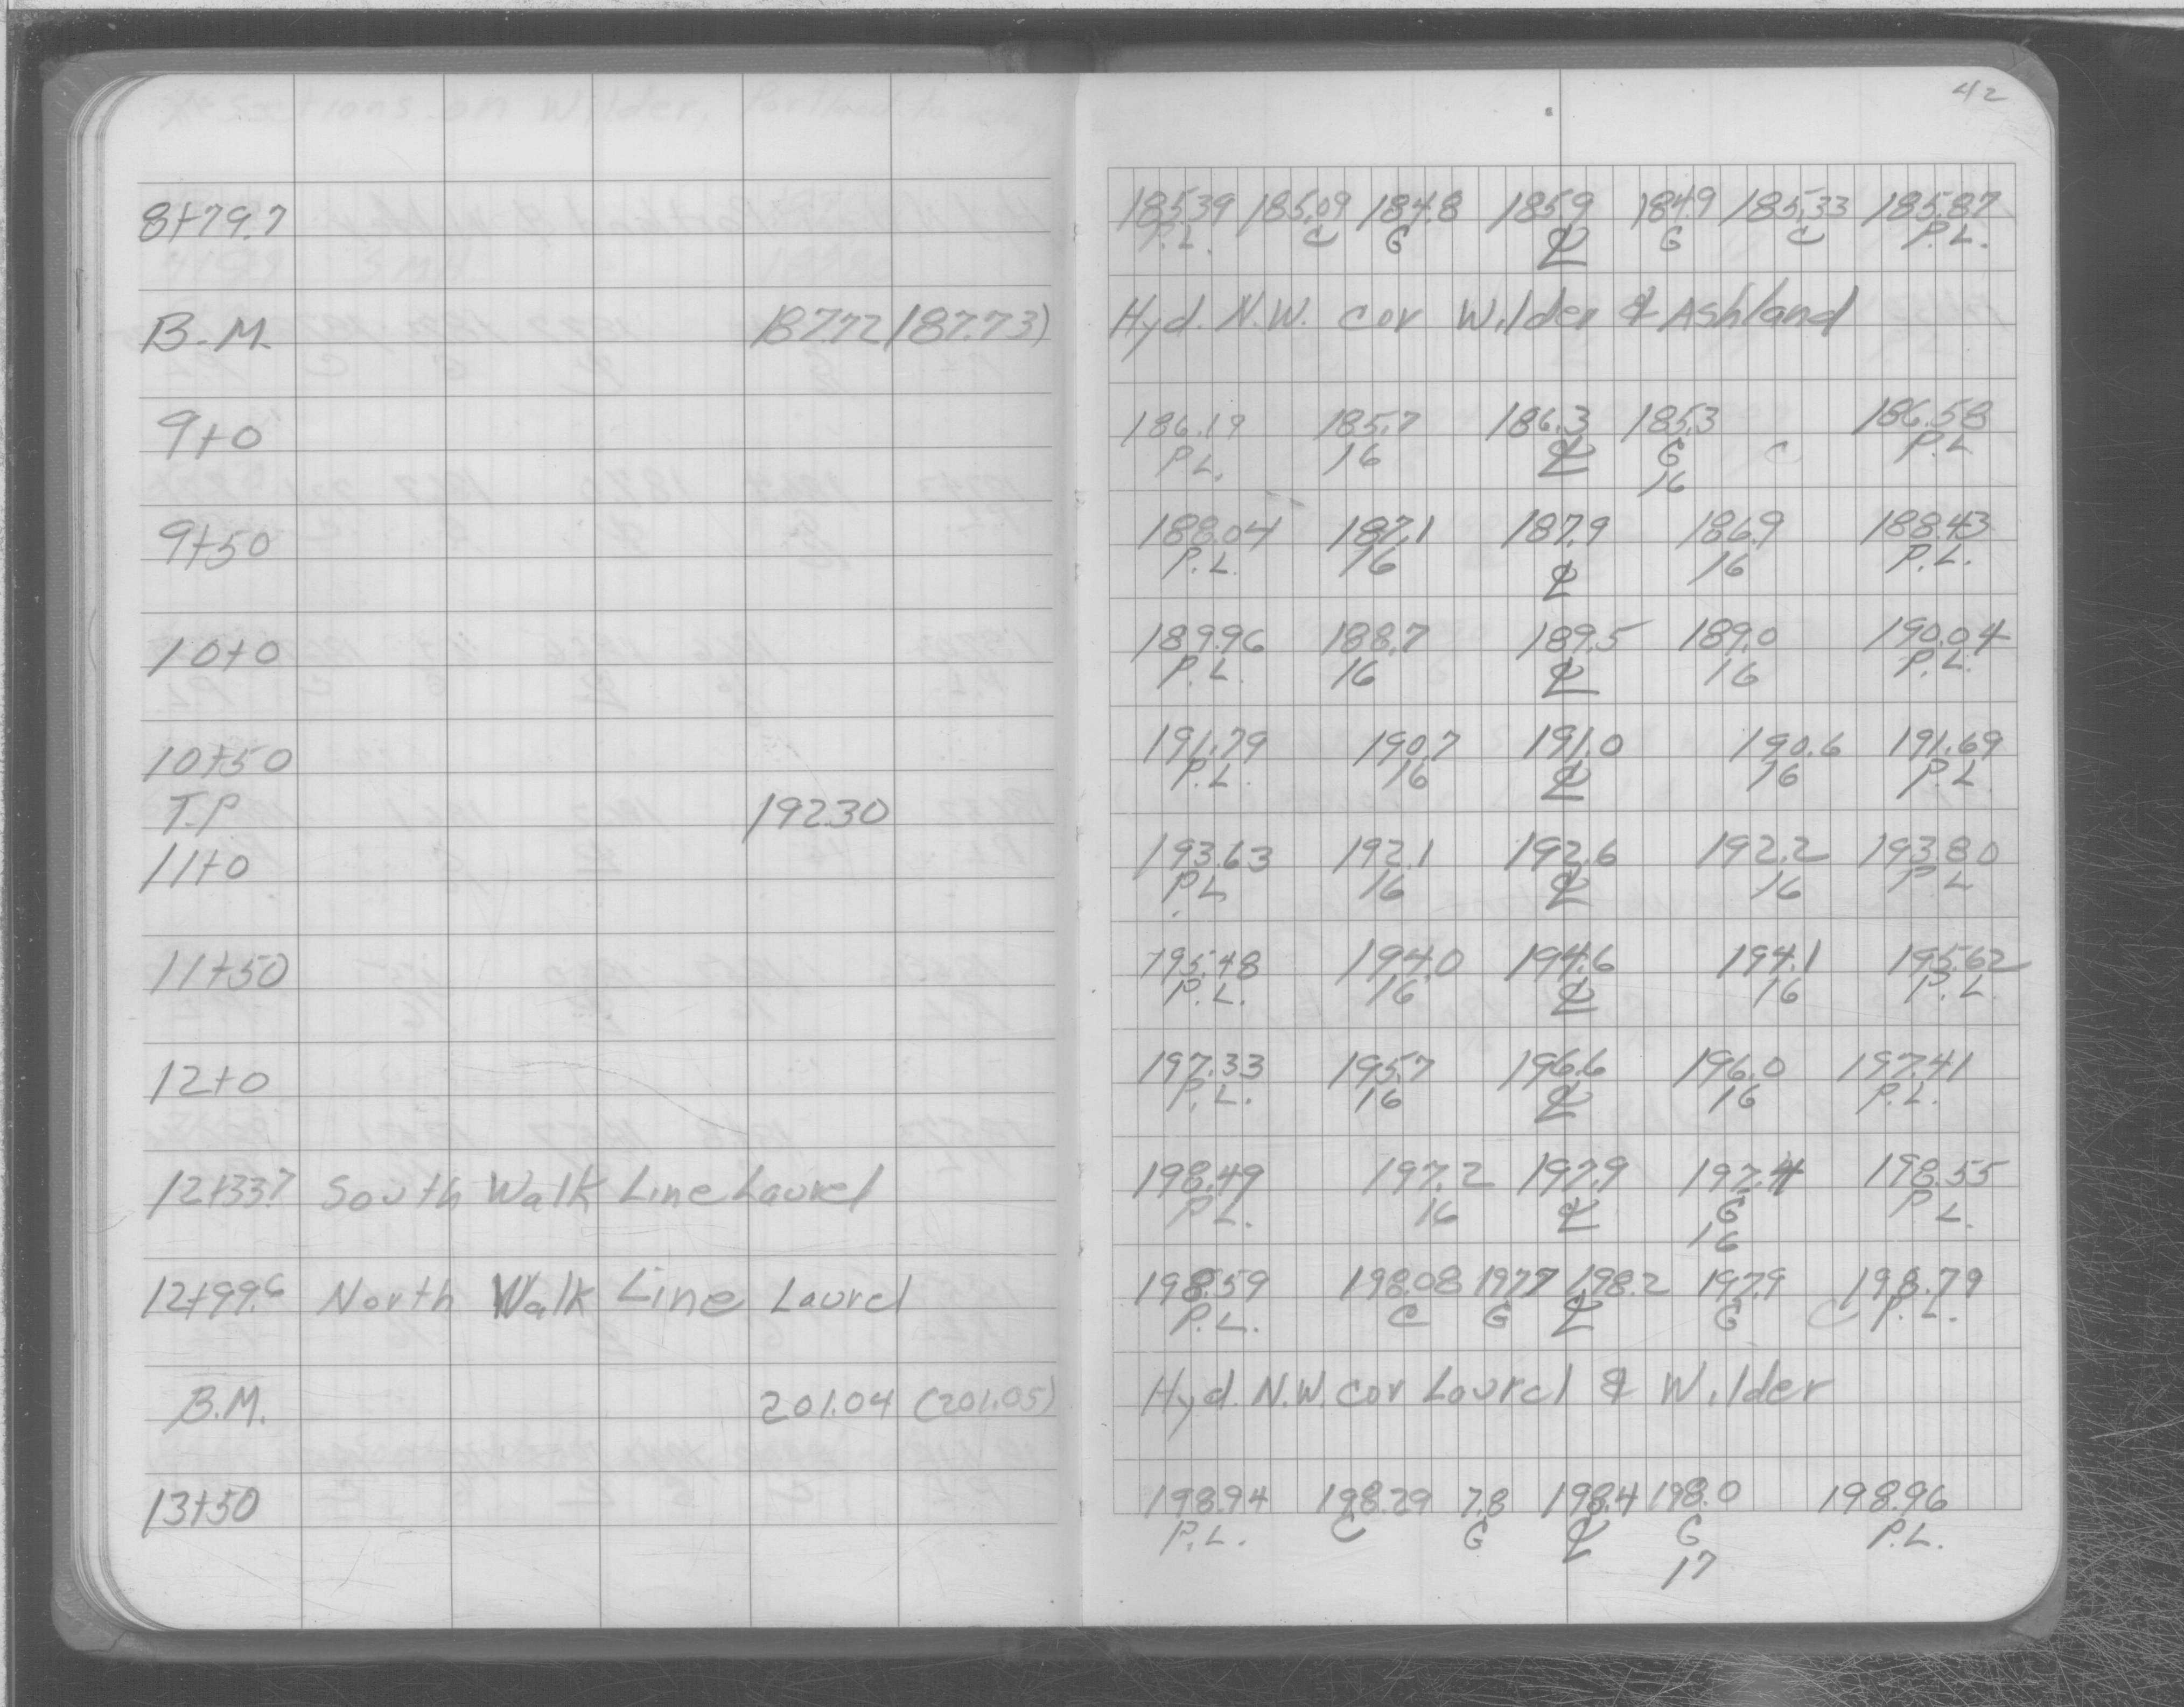 42
8+79.7 185.39 185.09 184.8 185.9 184.9 185.33 185.87
P.L. C G ℄ G C P.L.
B.M. 187.72 187.73) Hyd. N.W. cor Wilder & Ashland
9+0 186.19 185.7 186.3 185.3 186.58
P.L. 16 ℄ G C P.L
16
9+50 188.04 187.1 187.9 186.9 188.43
P.L. 16 ℄ 16 P.L.
10+0 189.96 188.7 189.5 189.0 190.04
P.L. 16 ℄ 16 P.L.
10+50 191.79 190.7 191.0 190.6 191.69
P.L. 16 ℄ 16 P.L
T.P 192.30
11+0 193.63 192.1 192.6 192.2 193.80
P.L 16 ℄ 16 P.L
11+50 195.48 194.0 194.6 194.1 195.62
P.L. 16 ℄ 16 P.L
12+0 197.33 195.7 196.6 196.0 197.41
P.L. 16 ℄ 16 P.L.
12+33.7 South Walk Line Laurel 198.49 197.2 197.9 197.4 198.55
P.L. 16 ℄ G P.L.
16
12+99.6 North Walk Line Laurel 198.59 198.08 197.7 198.2 197.9 198.79
P.L. C G ℄ G C P.L.
B.M. 201.04 (201.05) Hyd. N.W. Cor Laurel & Wilder
13+50 198.94 198.29 7.8 198.4 198.0 198.96
P.L. C G ℄ G P.L.
17